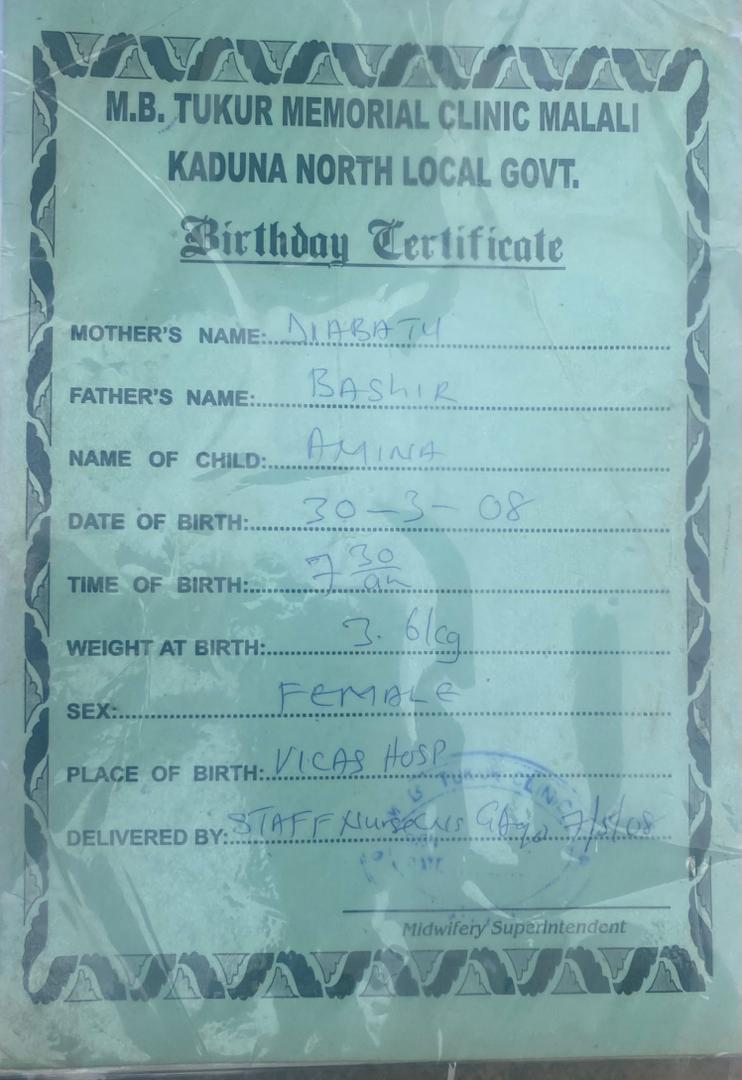 M.B. TUKUR MEMORIAL CLINIC MALALI
KADUNA NORTH LOCAL GOVT.
Birthday Certificate
MOTHER'S NAME: DIABATU
FATHER'S NAME: BASHIR
NAME OF CHILD: AMINA
DATE OF BIRTH: 30-3-08
TIME OF BIRTH: 7 30/am
WEIGHT AT BIRTH: 3.6kg
SEX: FEMALE
PLACE OF BIRTH: VICAS HOSP
TUKUR CLINIC
DELIVERED BY: STAFF 7/5/08
Midwifery Superintendent